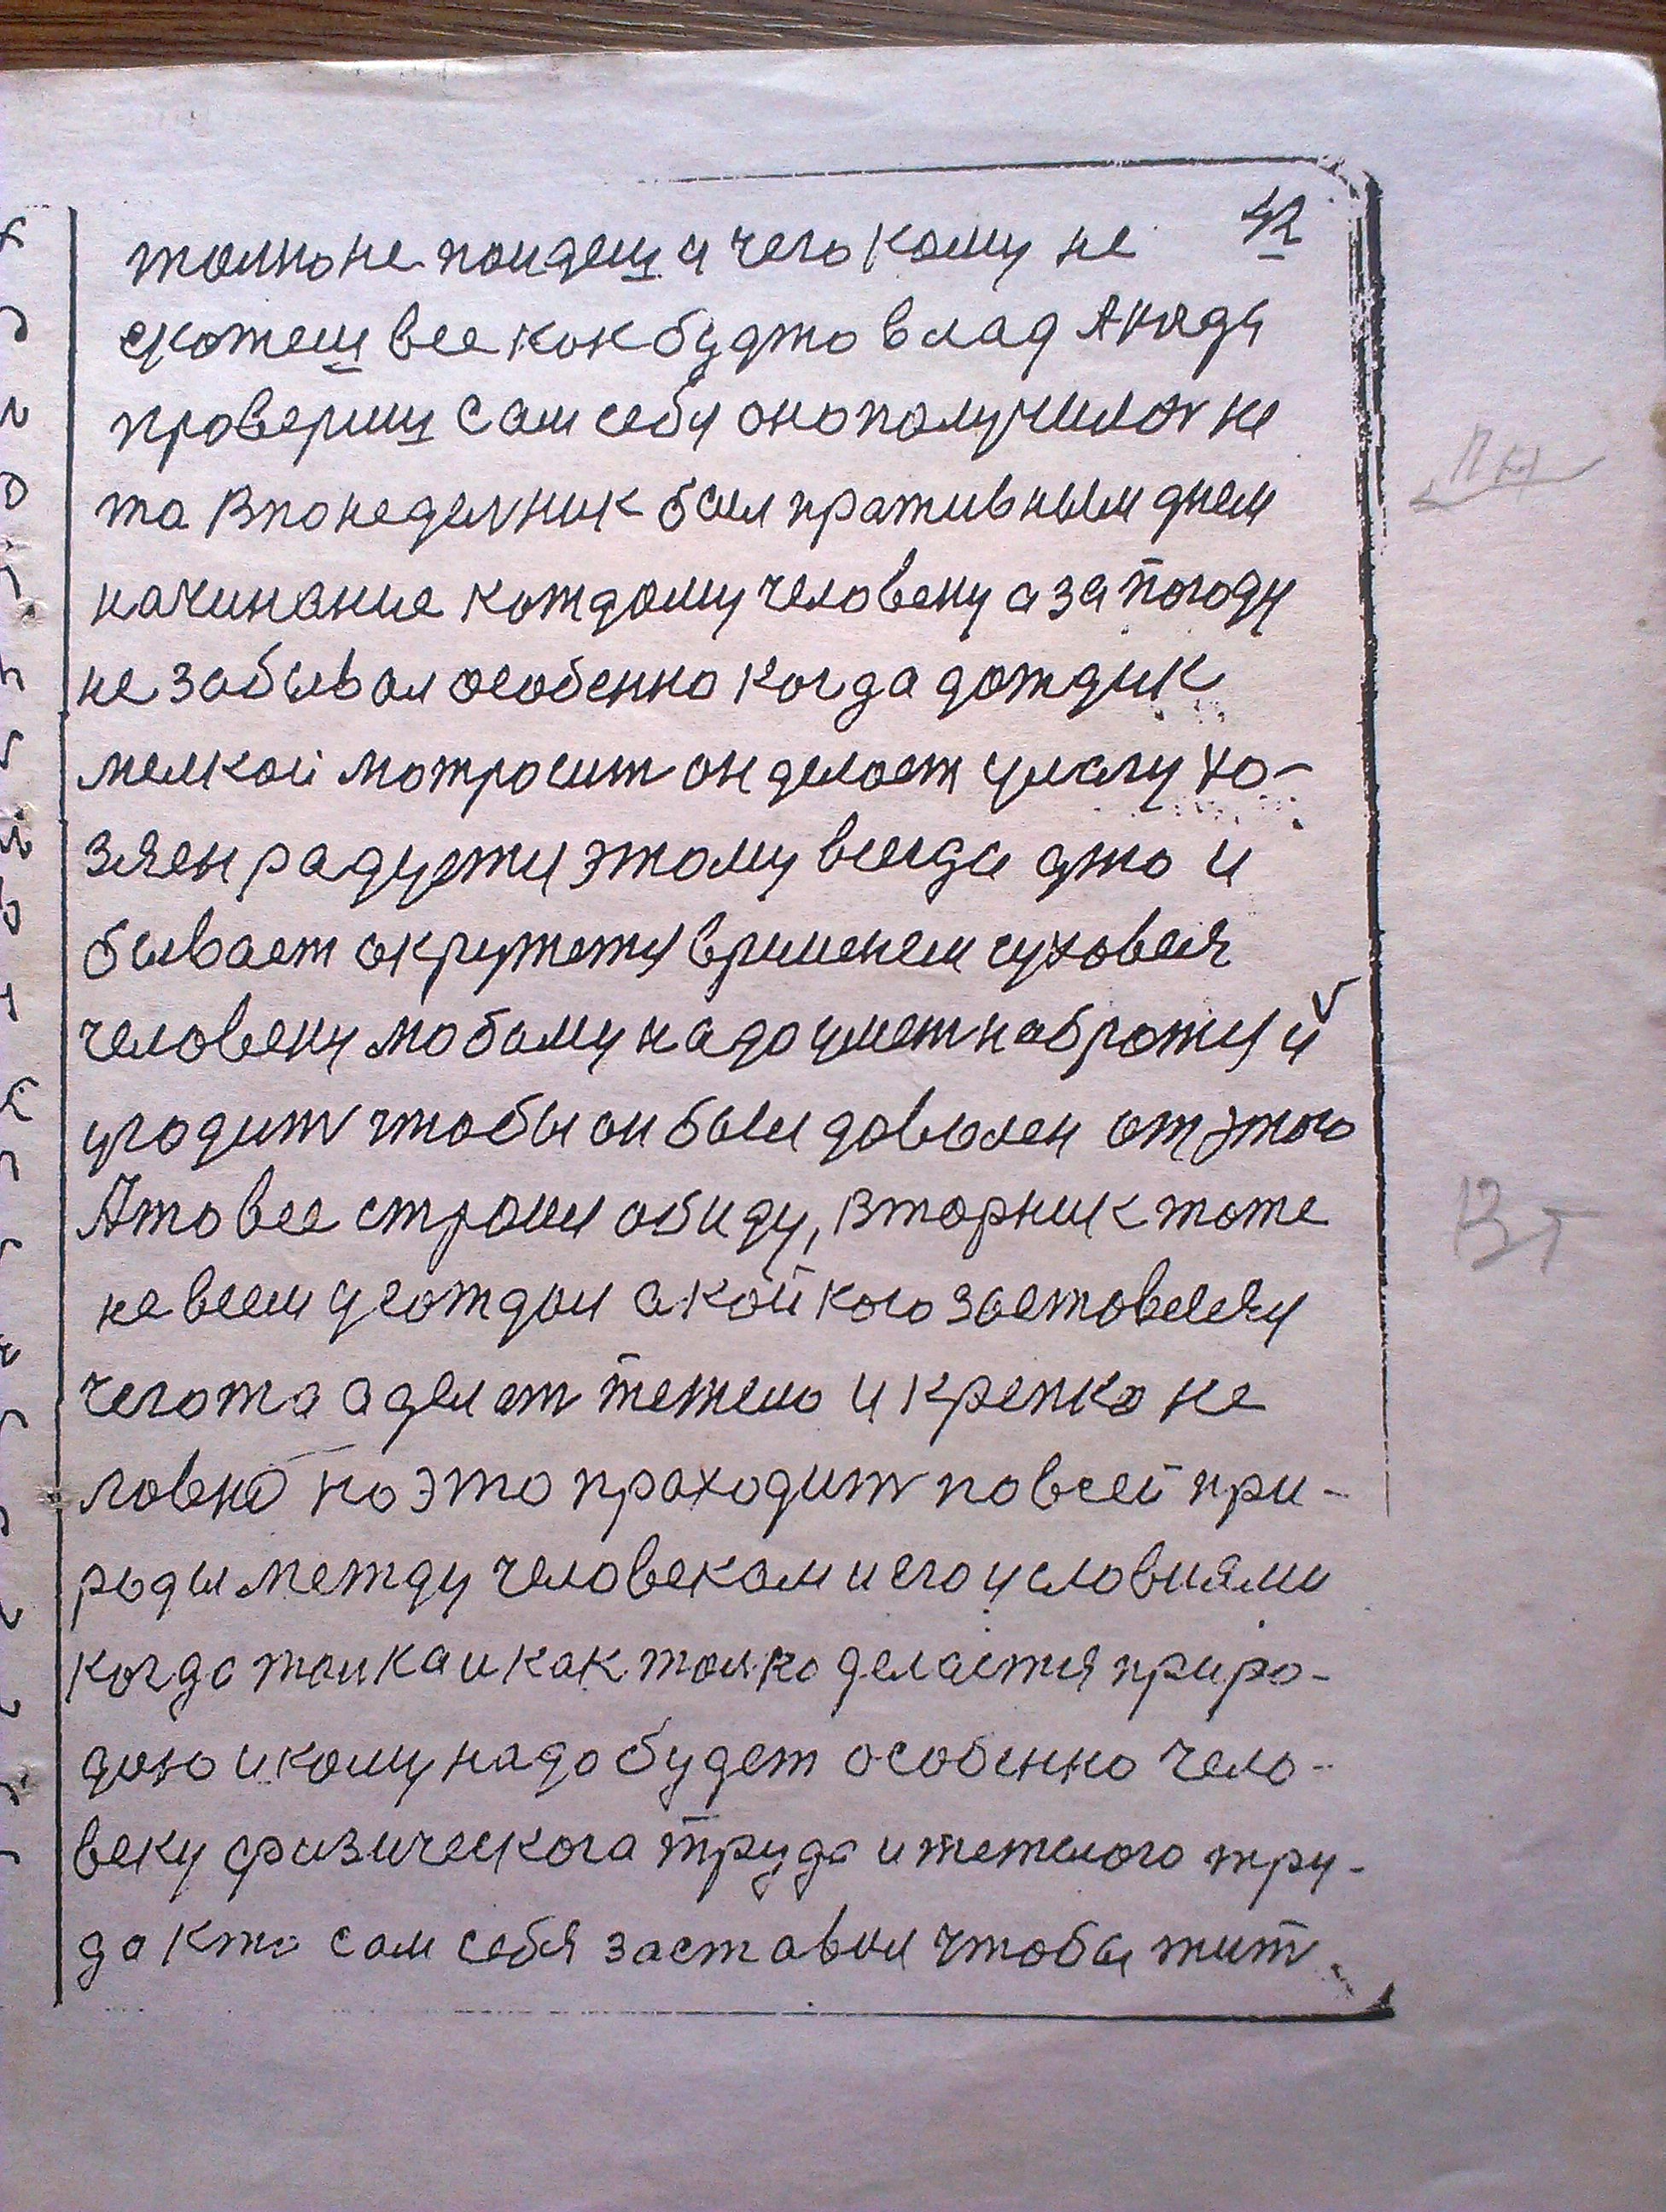 42
толко не поидеш и чего кому не
скажеш все как будто в лад А когда
провериш сам себя оно получилос не
та В понеделник был пративным днем
начинание каждому человеку а за погоду
не забывал особенно когда дождик
мелкой матросит он делает
зяен радуется этому всегда
бывает окружется временем суховея
человеку любому надо умет набротся и
угодит чтобы он был доволен от этого
А то все строил обиду, Вторник тоже
не всем угождал а кой кого заставлял
чегота аделат тежело и крепко не
ловко но это праходит по всей при-
роды между человеком и его условиями
когда толка и как толко делается приро-
дою и кому надо будет особенно чело-
веку физическога труда и тежелого тру-
да кто сам себя заставил чтобы жит
ПН
ВТ